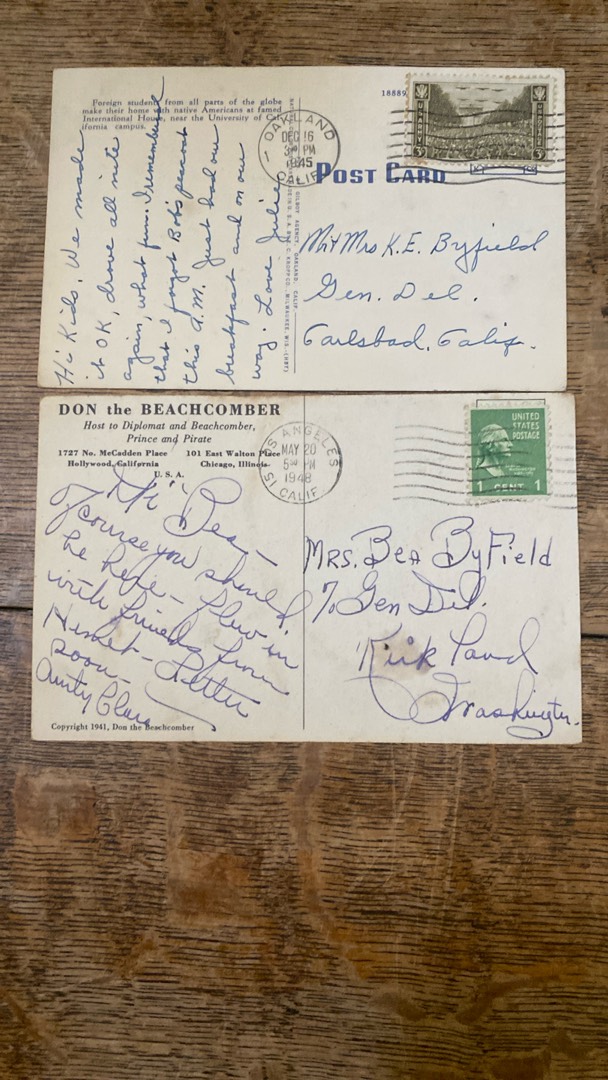 Foreign students from all parts of the globe
make their home with native Americans at famed
International House, near the University of Cal-
ifornia campus.
18889
OAKLAND
DEC 16
3 PM
1945
CALIF.
POST CARD
Hi Kids. We made
it OK, drove all nite
again, what fun. I remembered
that I forgot Bob's peacoat
this a.m. Just had our
breakfast and on our
way. Love Julie
Mr & Mrs K.E. Byfield
Gen. Del.
Carlsbad, Calif.
DON the BEACHCOMBER
Host to Diplomat and Beachcomber,
Prince and Pirate
1727 No. McCadden Place 101 East Walton Place
Hollywood, California Chicago, Illinois
U. S. A.
LOS ANGELES
MAY 20
5 PM
1948
CALIF.
UNITED
STATES
POSTAGE
1 CENT 1
Hi Bea —
of course you should
be here — flew in
with friends from
Hemet — Letter
soon —
Aunty Clara
Mrs. Bea ByField
% Gen Del.
Kirkland
Washington.
Copyright 1941, Don the Beachcomber